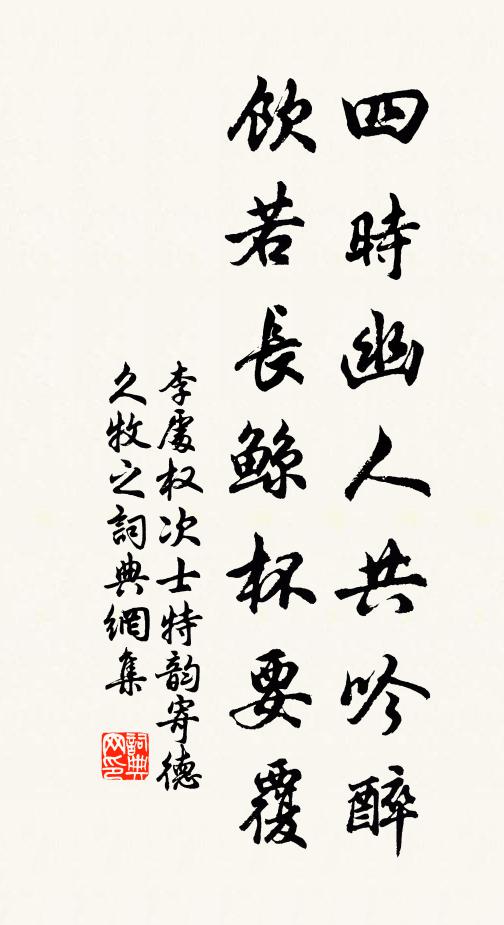 四時幽人共吟醉
飲若長鯨杯要覆
李處权次士特韵寄德
久牧之詞典網集
詞典网印